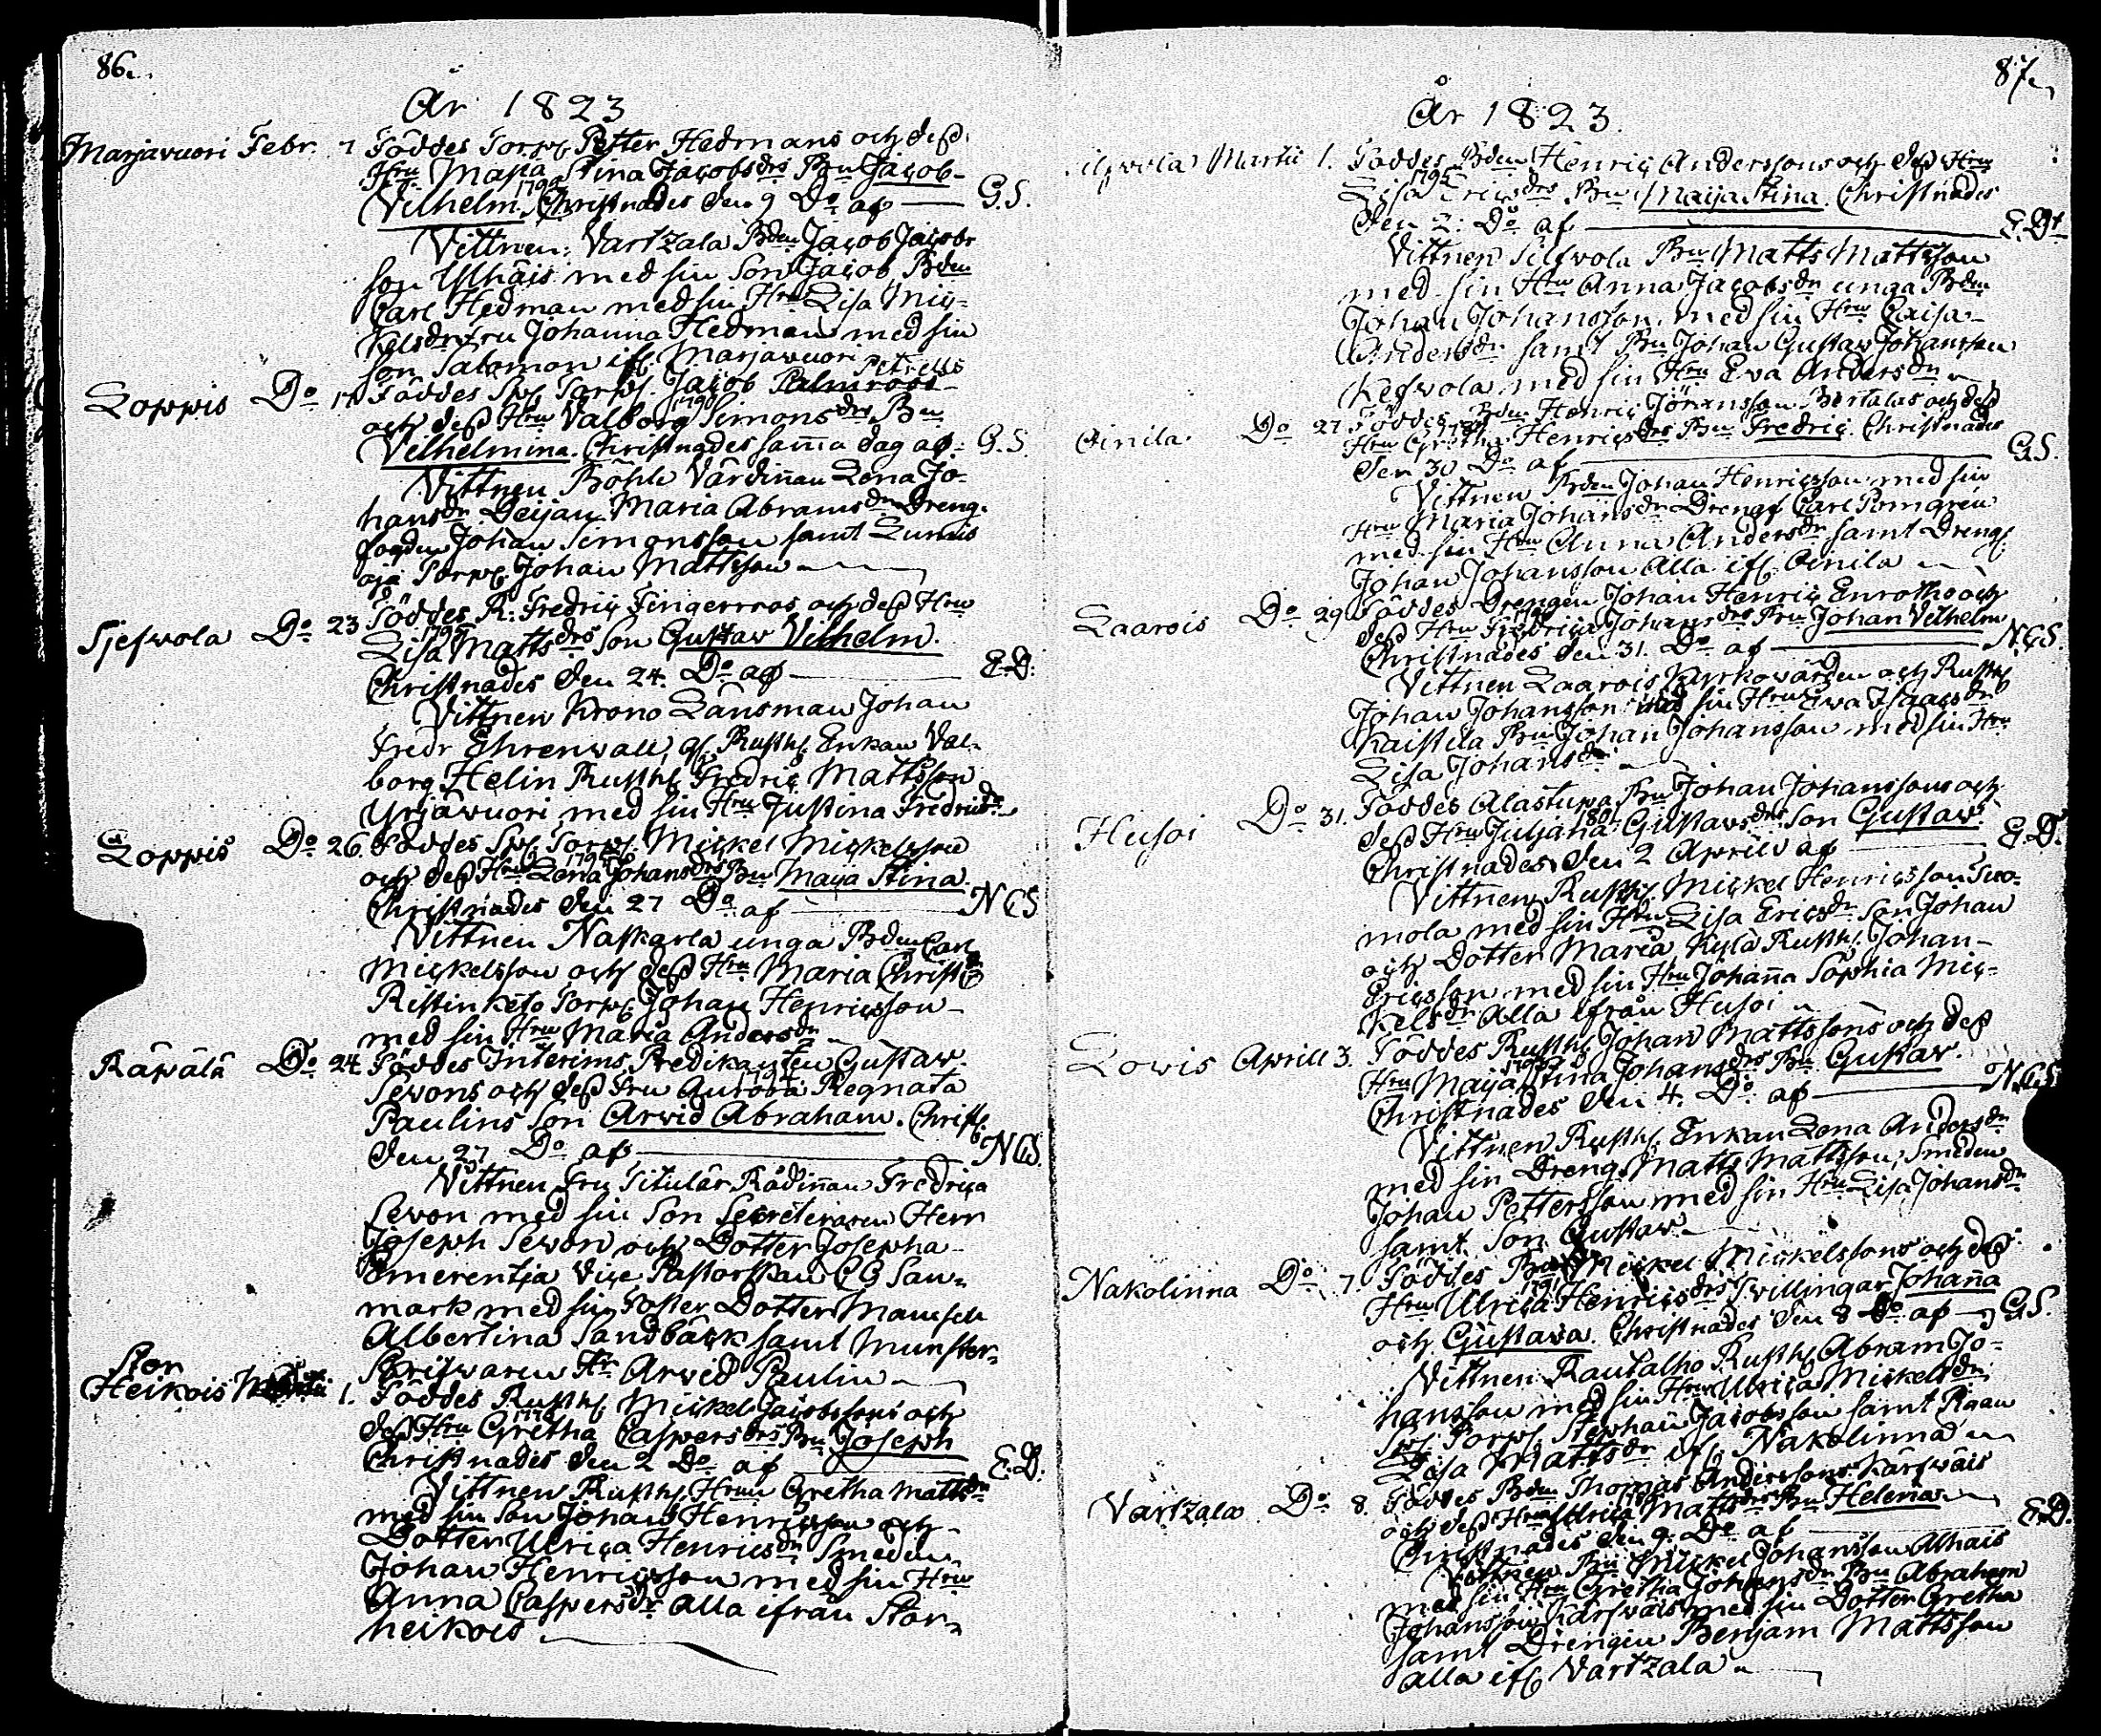 86.
År 1823
Marjavuori Febr. 7 Föddes Torp. Petter Hedmans och dess
Hru Maja Stina Jacobsdrs Bn Jacob-
1792
Vilhelm. Christnades den 9 Do af — G.S.
Vittnen: Vartzala Bden Jacob Jacobs-
son Ylhäis med sin Son Jacob Bden
Carl Hedman med sin Hru Lisa Mic-
kelsdr Fru Johanna Hedman med sin
Son Salomon ifr. Marjavuori
Petrells
Loppis Do 17 Föddes Sp. Torp. Jacob Palmroos
och dess Hru Valborg Simonsdrs Bn
1790
Vilhelmina. Christnades samma dag af: G.S.
Vittnen Böhle Värdinnan Lena Jo-
hansdr Deijan Maria Abramsdr Dreng-
fogden Johan Simonsson samt
oja Torp. Johan Mattsson
Sjefvola Do 23 Föddes R: Fredric Fingerroos och dess Hru
Lisa Mattsdrs Son Gustav Vilhelm.
Christnades den 24. Do af — E.D.
Vittnen Krono Länsman Johan
Fredr Ehrenwall, gl. Rusth. Enkan Val-
borg Helin Rusth. Fredric Mattsson
Yrjävuori med sin Hru Justina Fredricsdr
Loppis Do 26. Föddes Sp. Torp. Mickel Mickelsson
och dess Hru Lena Johansdrs Bn Maija Stina.
1795
Christnades den 27 Do af — NCS
Vittnen Naskarla unga Bden Carl
Mickelsson och dess Hru Maria Christ.
Ristinketo Torp. Johan Henricsson
med sin Hru Maria Andersdr
Räpälä Do 24 Föddes Interims Predikanten Gustav
Sevons och dess Fru Aurora Regnata
Paulins Son Arvid Abraham. Christ.
den 27 Do af — NCS.
Vittnen Fru Titulär Rådinnan Fredrica
Sevon med sin Son Secreteraren Herr
Joseph Sevon och Dotter Josepha
Emerentja Vice Pastorskan CG San-
mark med sin Foster Dotter Mamsell
Albertina Sandbäck samt Munster-
Skrifvaren Hr Arvid Paulin
Stor
Heikois Martii 1. Föddes Rusth. Mickel Jacobssons och
dess Hru Gretha Caspersdrs Bn Joseph
Christnades den 2 Do af — E.D.
Vittnen Rusth. Hrun Gretha Mattsdr
med sin Son Johan Henricsson och
Dotter Ulrica Henricsdr Smeden
Johan Henricsson med sin Hru
Anna Caspersdr alla ifrån Stor-
heikois
87.
År 1823.
Martii 1. Föddes Bden Henric Anderssons och dess Hru
1795
Lisa Ericsdrs Bn Maija Stina. Christnades
den 2: Do af — E.Dt
Vittnen Silfvola Bn Matts Mattsson
med sin Hru Anna Jacobsdr unga Bden
Johan Johansson med sin Hru Caisa
Andersdr samt Bn Johan Gustav Johansson
Kefvola med sin Hru Eva Andersdr
Oinila Do 27. Föddes Bden Henric Göransson Bertalas och dess
Hru Gretha Henricsdrs Bn Fredric. Christnades
den 30 Do af — G.S.
Vittnen Bden Johan Henricsson med sin
Hru Maria Johansdr Dreng Carl Pomgren
med sin Hru Anna Andersdr samt Dreng.
Johan Johansson alla ifr. Oinila
Laarois Do 29 Föddes Drengen Johan Henric Enroths och
dess Hru Fredrica Johansdrs Bn Johan Vilhelm
Christnades den 31. Do af — NCS.
Vittnen Laarois Kyrkovärden och Rusth.
Johan Johansson med sin Hru Eva Isaacsdr
Kaistila Bn Johan Johansson med sin Hru
Lisa Johansdr
Husoi Do 31. Föddes Alastupa Bn Johan Johanssons och
dess Hru Juljana Gustavsdrs Son Gustav
1801
Christnades den 2 Aprill af — E.D.
Vittnen Rusth. Mickel Henricsson Tuo-
mola med sin Hru Lisa Ericsdr Son Johan
och Dotter Maria Kylä Rusth. Johan
Ericsson med sin Hru Johanna Sophia Mic-
kelsdr alla ifrån Husoi
Lowis Aprill 3. Föddes Rusth. Johan Mattssons och dess
Hru Maija Stina Johansdrs Bn Gustav.
Christnades den 4. Do af — N.C.S
Vittnen Rusth. Enkan Lena Andersdr
med sin Dreng Matts Mattsson, Smeden
Johan Pettersson med sin Hru Lisa Johansdr
samt Son Gustav
Nakolinna Do 7. Föddes Bn Mickel Mickelssons och dess
1791
Hru Ulrica Henricsdrs Tvillingar Johanna
och Gustava. Christnades den 8 Do af — G.S.
Vittnen Rautalho Rusth. Abram Jo-
hansson med sin Hru Ulrica Mickelsdr
Sp. Torp. Stephan Jacobsson samt Pigan
Lisa Mattsdr ifr. Nakolinna
Vartzala Do 8. Föddes Bden Thomas Anderssons Kärfwäis
och dess Hru Ulrica Mattsdrs Bn Helena
Christnades den 9. Do af — E.D.
Vittnen Bn Mickel Johansson Alhais
med sin Hru Gretha Johansdr Bn Abraham
Johansson Kärfwäis med sin Dotter Gretha
samt Drengen Benjam Mattsson
alla ifr. Vartzala